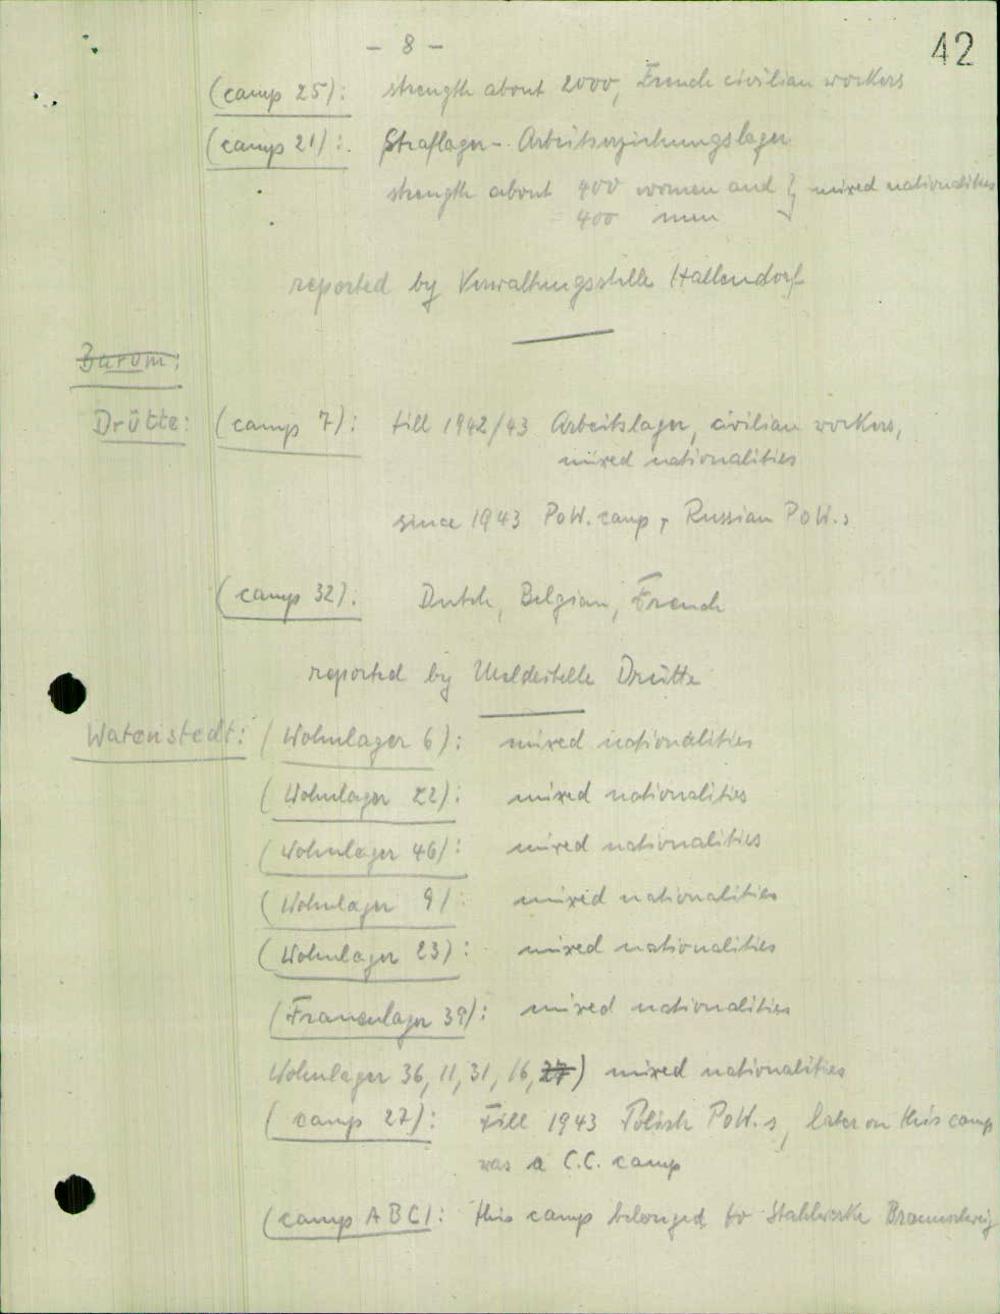 - 8 -
42
(camp 25): strength about 2000, French civilian workers
(camp 21): Straflager - Arbeitserziehungslager
strength about 400 women and } mixed nationalities
400 men
reported by Verwaltungsstelle Hallendorf
Barum:
Drütte: (camp 7): till 1942/43 Arbeitslager, civilian workers,
mixed nationalities
since 1943 PoW. camp, Russian PoW.s
(camp 32): Dutch, Belgian, French
reported by Meldestelle Drütte
Watenstedt: (Wohnlager 6): mixed nationalities
(Wohnlager 22): mixed nationalities
(Wohnlager 46): mixed nationalities
(Wohnlager 9): mixed nationalities
(Wohnlager 23): mixed nationalities
(Frauenlager 39): mixed nationalities
Wohnlager 36, 11, 31, 16, 27) mixed nationalities
(camp 27): Till 1943 Polish PoW.s, later on this camp
was a C.C. camp
(camp ABC): this camp belonged to Stahlwerke Braunschweig